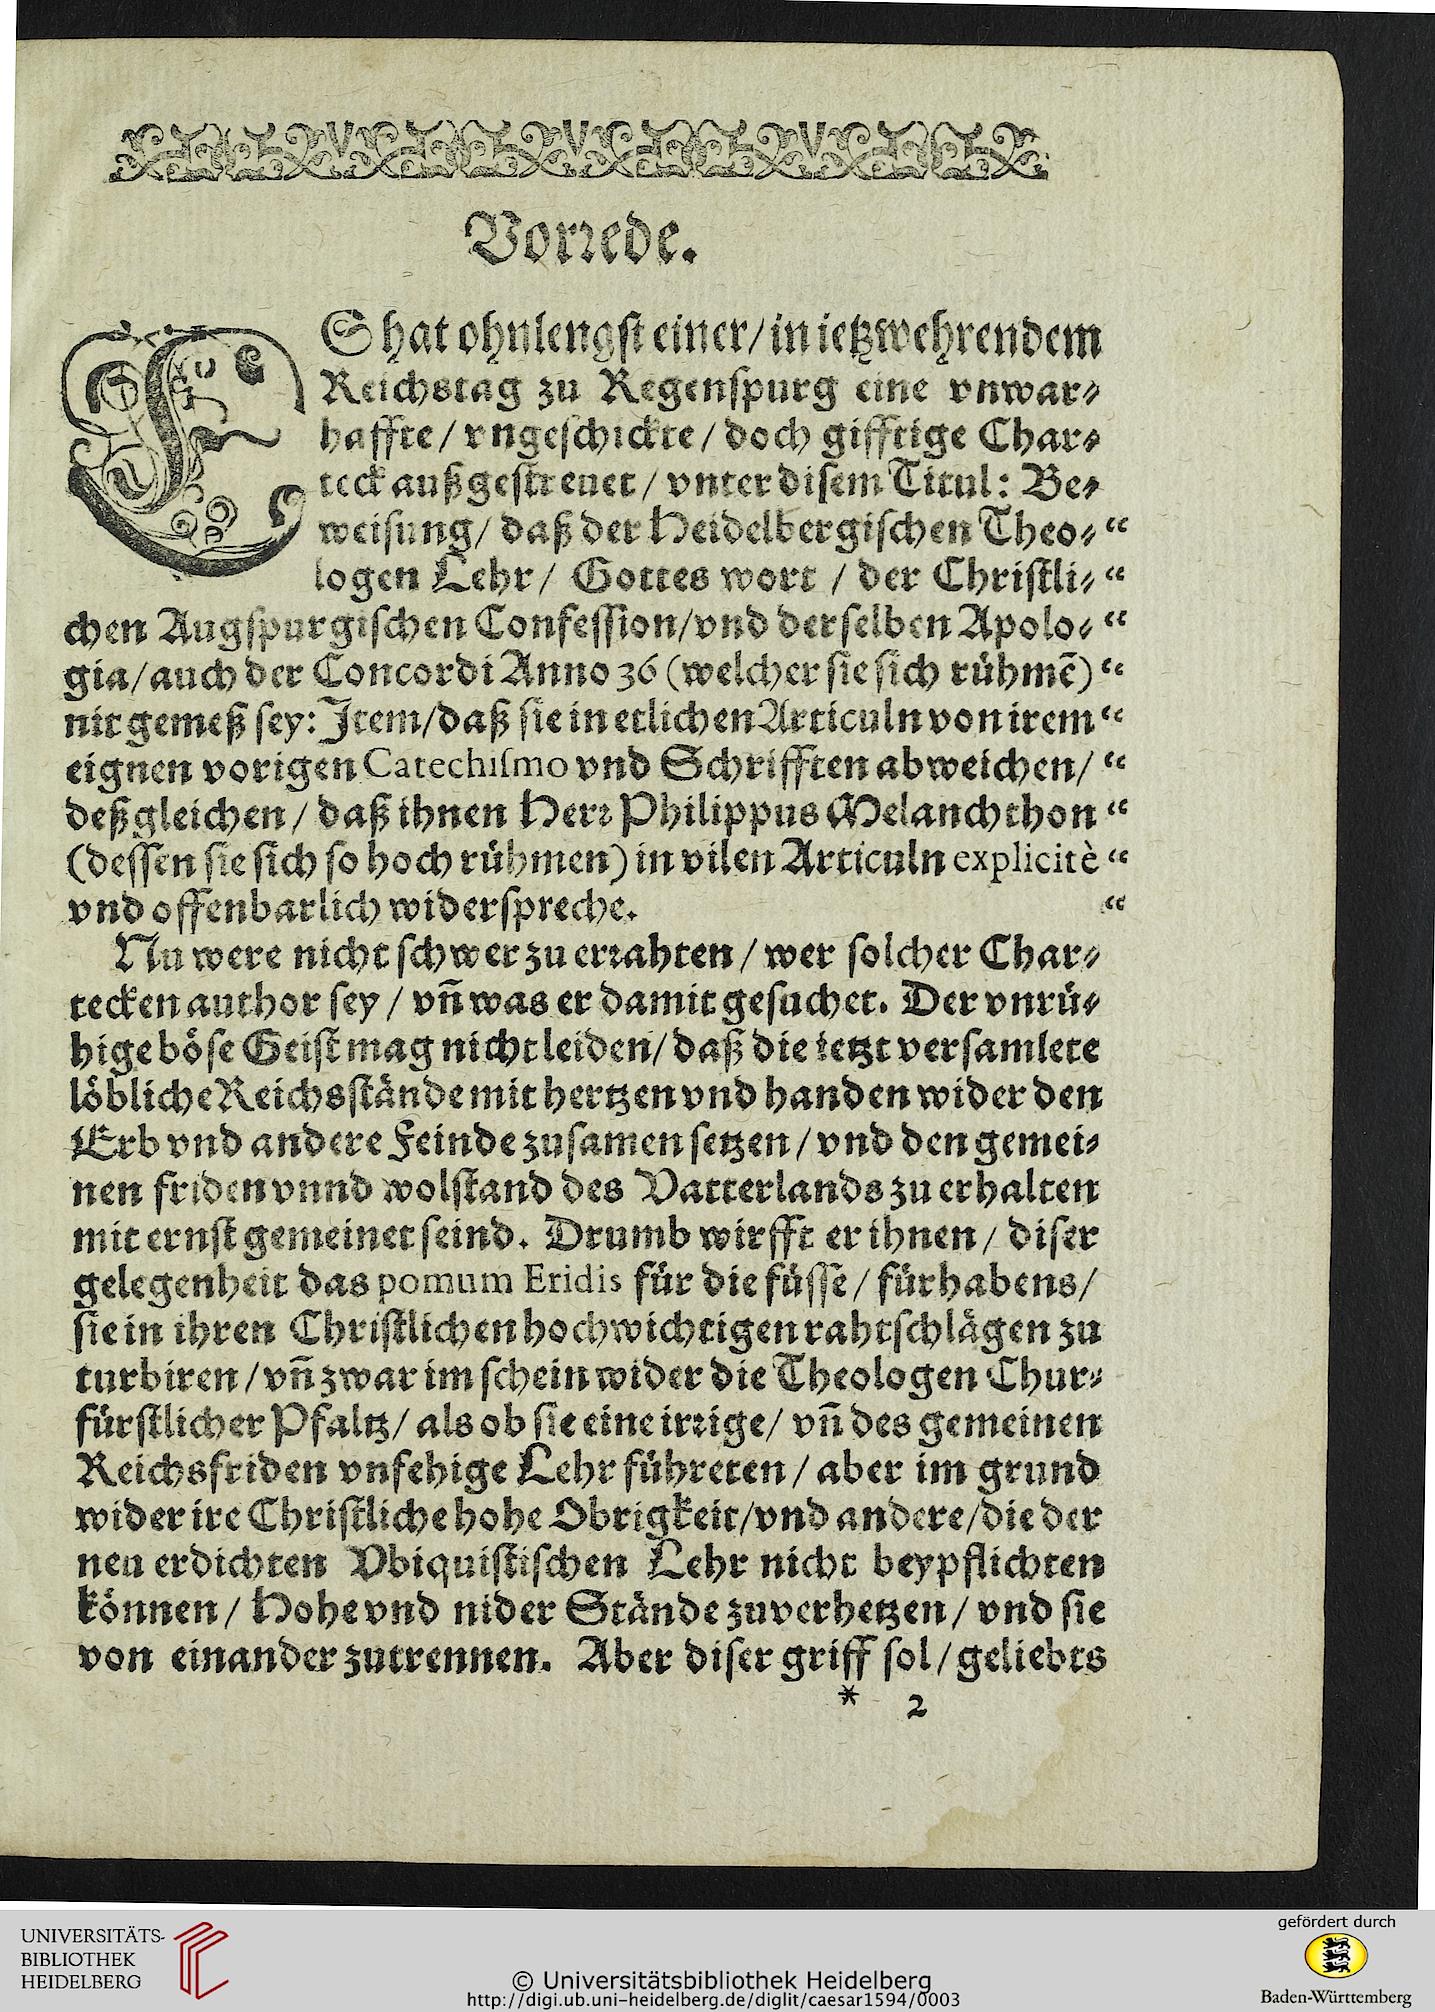 Vorrede.
ES hat ohnlengst einer/ in ietzwehrendem
Reichstag zu Regenspurg eine vnwar⸗
haffte/ vngeschickte/ doch gifftige Char⸗
teck außgestreuet/ vnter disem Titul: Be⸗
weisung/ daß der Heidelbergischen Theo⸗ “
logen Lehr/ Gottes wort / der Christli⸗ “
chen Augspurgischen Confession/ vnd derselben Apolo⸗ “
gia/ auch der Concordi Anno 36 (welcher sie sich rühmē) “
nit gemeß sey: Item/ daß sie in etlichen Articuln von irem “
eignen vorigen Catechismo vnd Schrifften abweichen/ “
deßgleichen/ daß ihnen Herr Philippus Melanchthon “
(dessen sie sich so hoch rühmen) in vilen Articuln explicitè “
vnd offenbarlich widerspreche. “
Nu were nicht schwer zu errahten/ wer solcher Char⸗
tecken author sey/ vñ was er damit gesuchet. Der vnrü⸗
hige böse Geist mag nicht leiden/ daß die ietzt versamlete
löbliche Reichsstände mit hertzen vnd handen wider den
Erb vnd andere Feinde zusamen setzen/ vnd den gemei⸗
nen friden vnnd wolstand des Vatterlands zu erhalten
mit ernst gemeinet seind. Drumb wirfft er ihnen/ diser
gelegenheit das pomum Eridis für die füsse/ fürhabens/
sie in ihren Christlichen hochwichtigen rahtschlägen zu
turbiren/ vñ zwar im schein wider die Theologen Chur⸗
fürstlicher Pfaltz/ als ob sie eine irrige/ vñ des gemeinen
Reichsfriden vnfehige Lehr führeten/ aber im grund
wider ire Christliche hohe Obrigkeit/ vnd andere/ die der
neu erdichten Vbiquistischen Lehr nicht beypflichten
können/ Hohe vnd nider Stände zuverhetzen/ vnd sie
von einander zutrennen. Aber diser griff sol/ geliebts
* 2
UNIVERSITÄTS-
BIBLIOTHEK
HEIDELBERG
© Universitätsbibliothek Heidelberg
http://digi.ub.uni-heidelberg.de/diglit/caesar1594/0003
gefördert durch
Baden-Württemberg